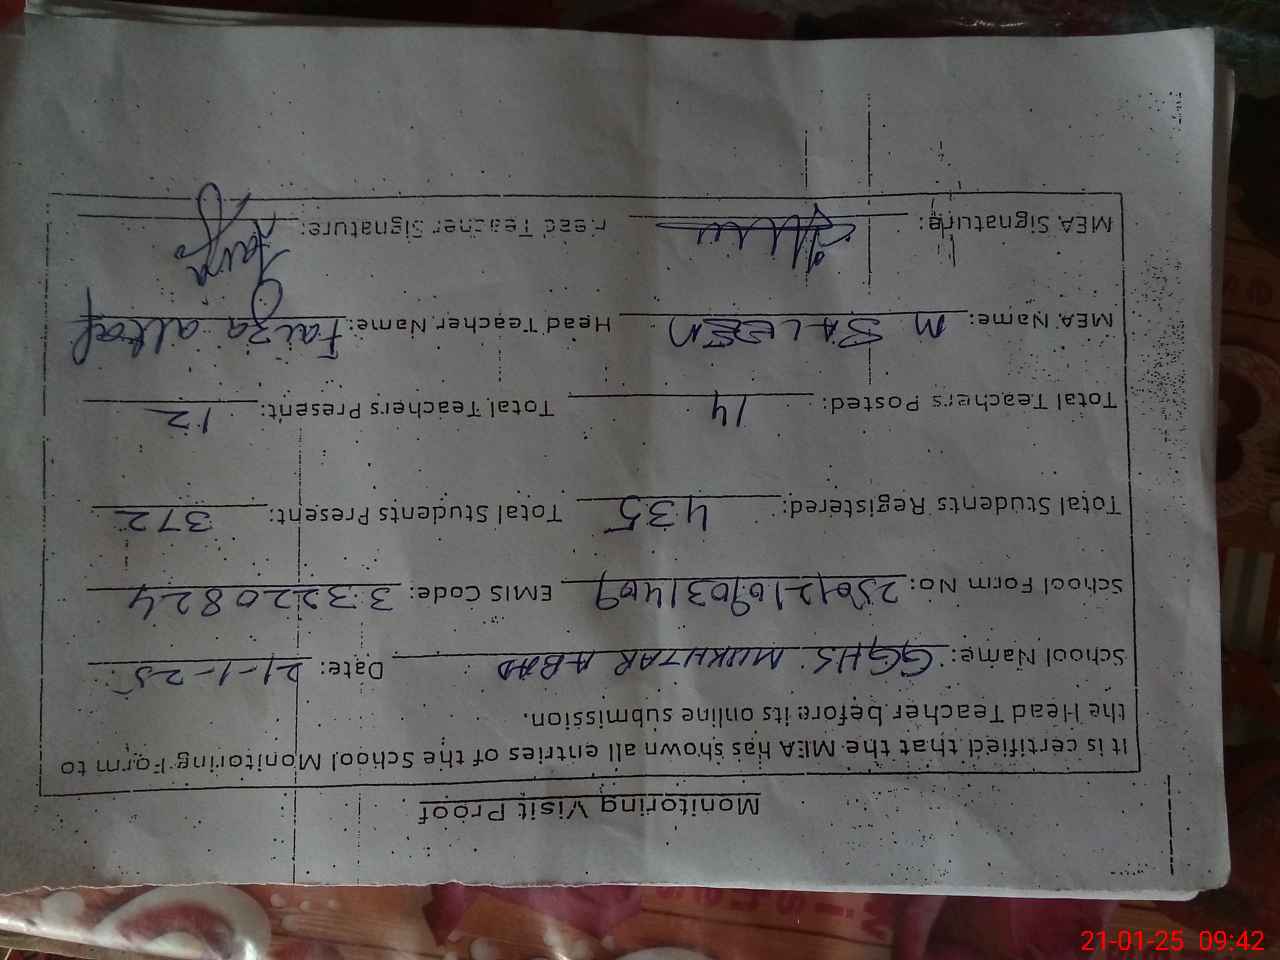 Monitoring Visit Proof
It is certified that the MEA has shown all entries of the School Monitoring Form to
the Head Teacher before its online submission.
School Name: GGHS MUKHTAR ABAD Date: 21-1-25
School Form No: EMIS Code: 33220824
Total Students Registered: 435 Total Students Present: 372
Total Teachers Posted: 14 Total Teachers Present: 12
MEA Name: M SALEEM Head Teacher Name: Faiza altaf
MEA Signature: Head Teacher Signature: Faiza
21-01-25 09:42